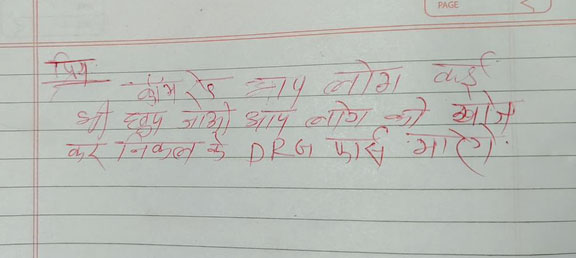 PAGE
प्रिय
कॉमरेड आप लोग कई
भी छुप जाओ आप लोग को खोज
कर निकल के DRG फोर्स मारेगे.